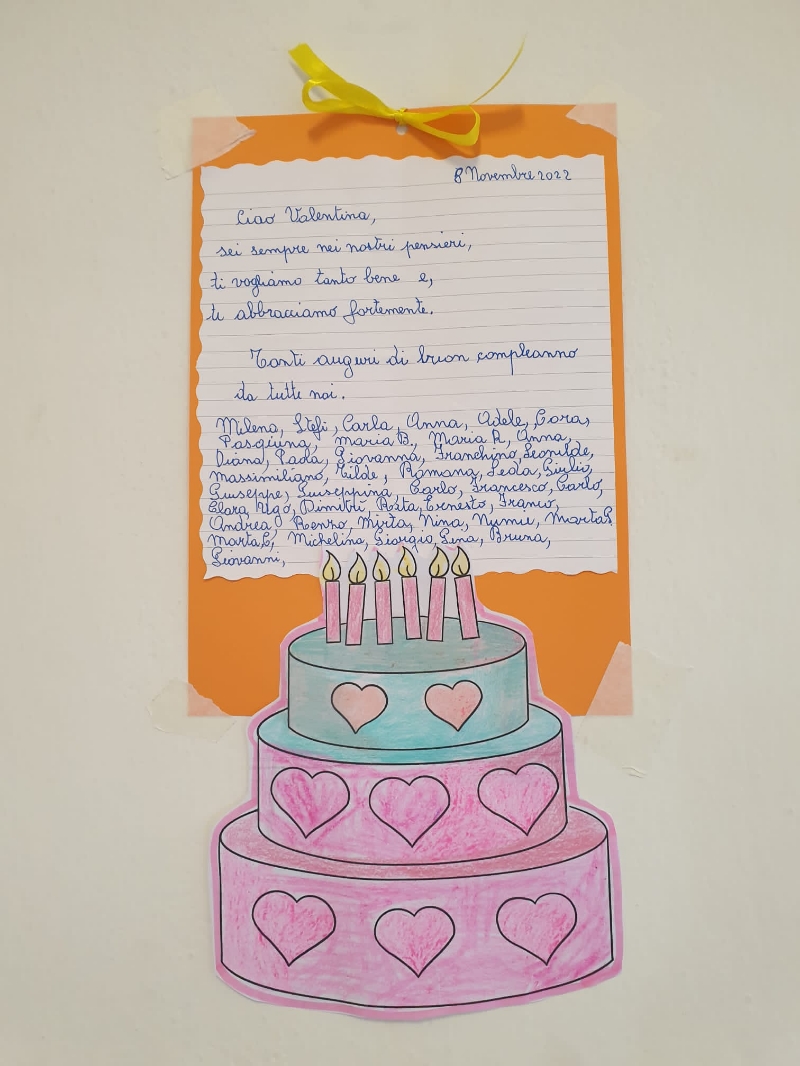 8 Novembre 2022
Ciao Valentina,
sei sempre nei nostri pensieri,
ti vogliamo tanto bene e,
ti abbracciamo fortemente.
Tanti auguri di buon compleanno
da tutte noi.
Milena, Stefi, Carla, Anna, Adele, Cora,
Pasquina, Maria B., Maria R, Anna,
Diana, Paola, Giovanna, Franchino, Leonilde,
Massimiliano, Tilde, Romana, Leola, Giulio,
Giuseppe, Giuseppina, Carlo, Francesco, Carlo,
Clara, Ugo, Dimitri, Rita, Ernesto, Franco,
Andrea, Renzo, Mirta, Nina, Marta
Marta Michelina, Giorgio, Gena, Bruna,
Giovanni,